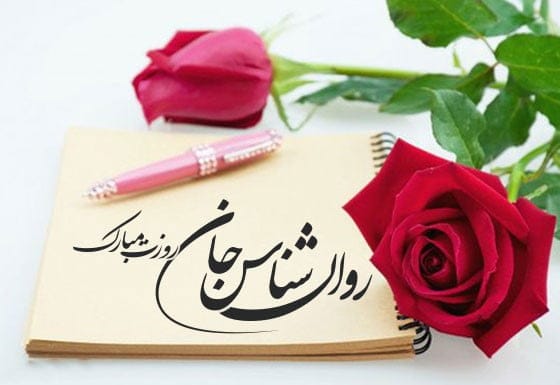 روان شناس جان
روزت مبارک